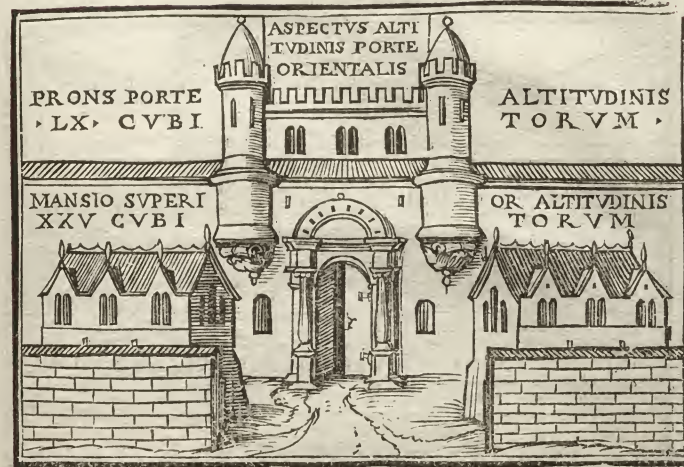 ASPECTVS ALTI
TVDINIS PORTE
ORIENTALIS
PRONS PORTE
· LX · CVBI
ALTITVDINIS
TORVM ·
MANSIO SVPERI
XXV CVBI
OR ALTITVDINIS
TORVM